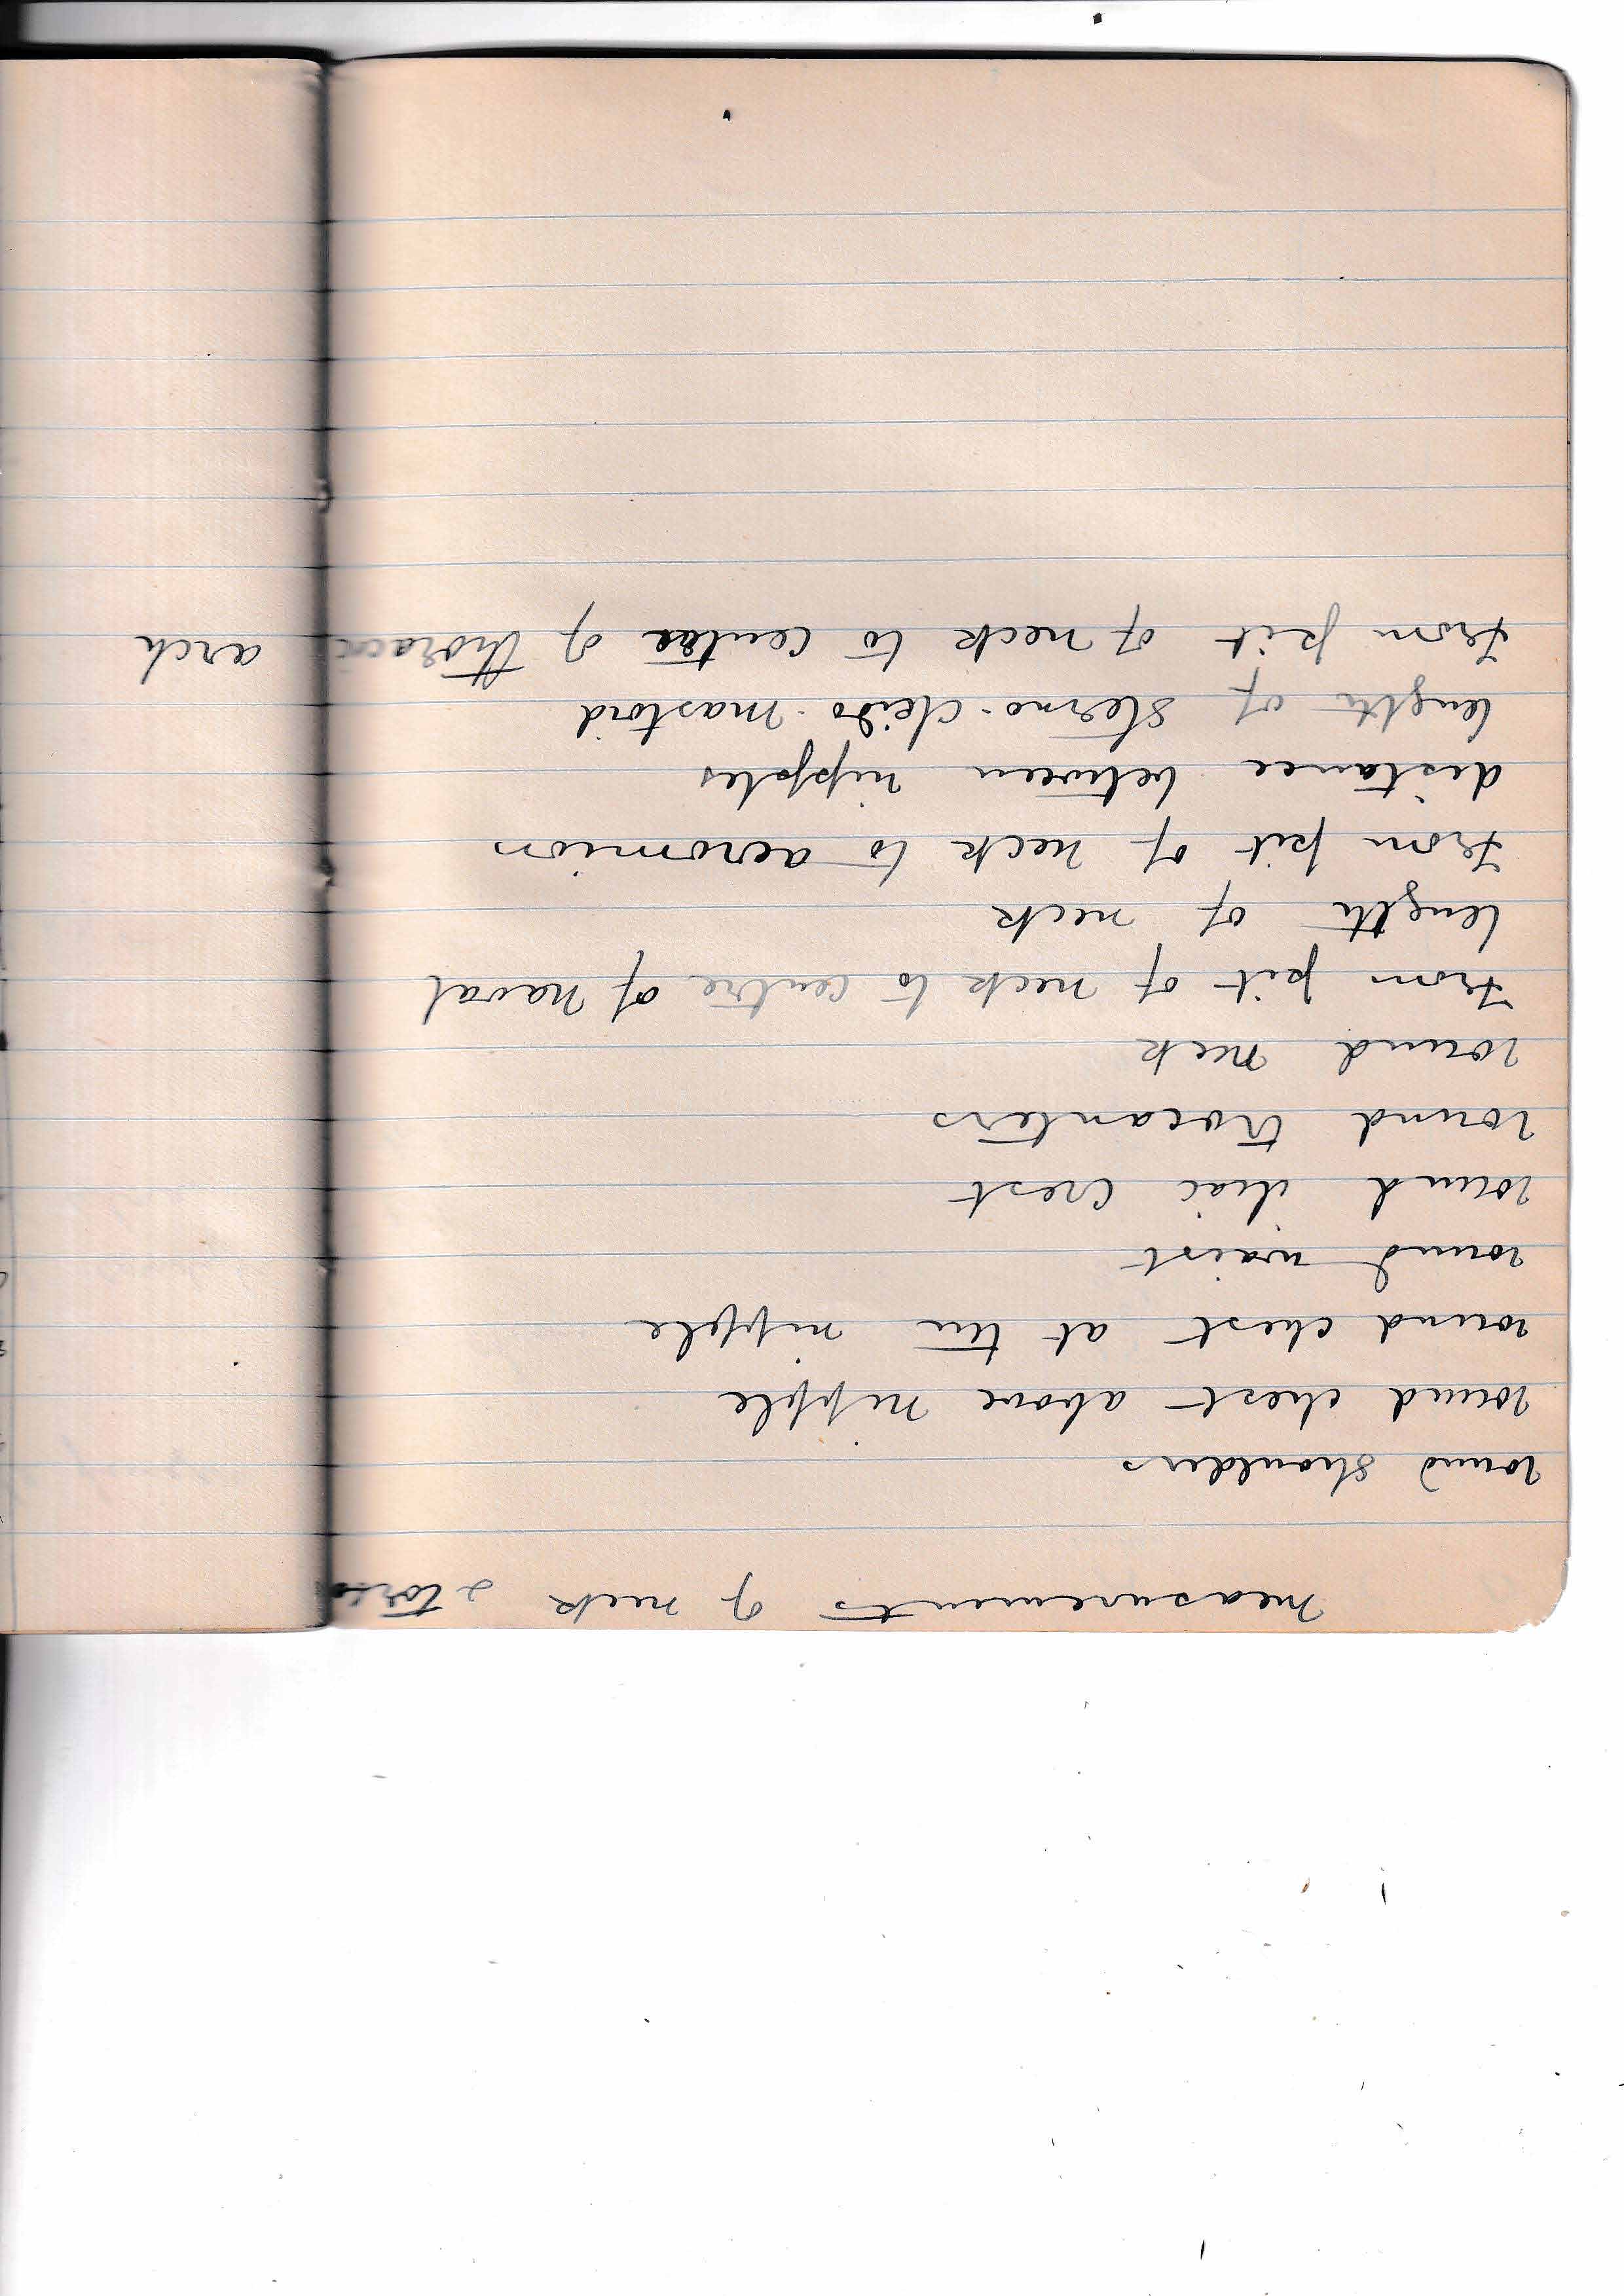 measurements of neck & torso
round shoulders
round chest above nipple
round chest at the nipple
round waist
round iliac crest
round trocanters
round neck
from pit of neck to centre of naval
length of neck
from pit of neck to acromion
distance between nipples
length of sterno-cleido-mastoid
from pit of neck to centre of thoracic arch